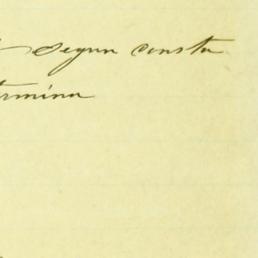 segun consta
termina